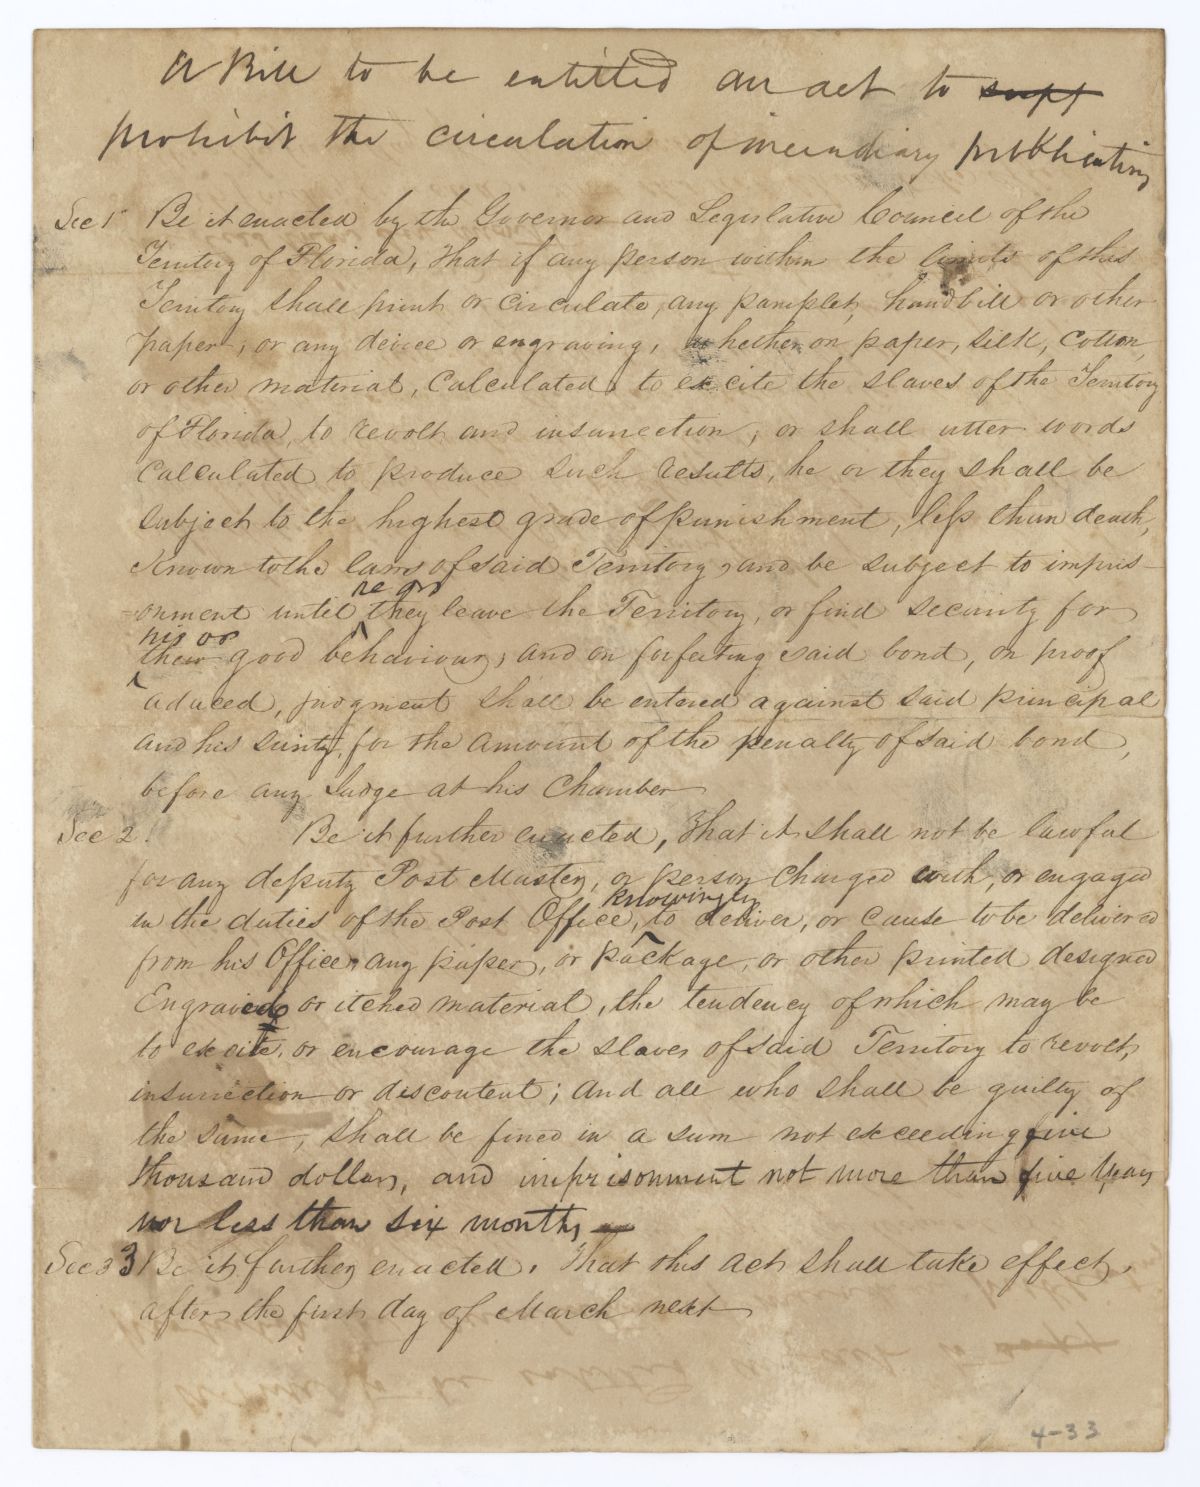 A Bill to be entitled an act to supp
prohibit the circulation of incendiary publications
Sec 1st Be it enacted by the Governor and Legislative Council of the
Territory of Florida, That if any person within the limits of this
Territory shall print or circulate, any pamplet, handbill or other
paper, or any device or engraving, whether on paper, silk, cotton,
or other material, Calculated to excite the slaves of the Territory
of Florida, to revolt and insurrection, or shall utter words
Calculated to produce such results, he or they shall be
subject to the highest grade of punishment, less than death,
Known to the laws of said Territory, and be subject to impris-
he or
onment until they leave the Territory, or find security for
his or
their good behaviour, and on forfeiting said bond, on proof
aduced, judgment shall be entered against said principal
and his surity, for the amount of the penalty of said bond,
before any Judge at his Chamber
Sec 2. Be it further enacted, That it shall not be lawful
for any deputy Post Master, or person charged with, or engaged
knowingly
in the duties of the Post Office, to deliver, or cause to be delivered
from his Office, any paper, or package, or other printed designed
Engraved or itched material, the tendency of which may be
to excite, or encourage the slaves of said Territory to revolt,
insurrection or discontent; and all who shall be guilty of
the same, shall be fined in a sum not exceeding five
thousand dollars, and imprisonment not more than five years
nor less than six months,
Sec 3 3 Be it further enacted. That this act shall take effect,
after the first day of March next
4-33